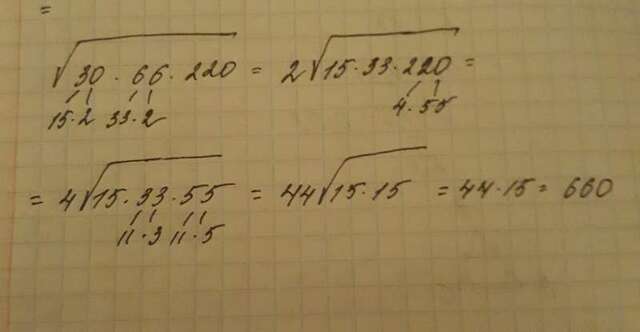 =
√30 · 66 · 220 = 2√15·33·220 =
15·2 33·2 4·55
= 4√15·33·55 = 44√15·15 = 44·15 = 660
11·3 11·5